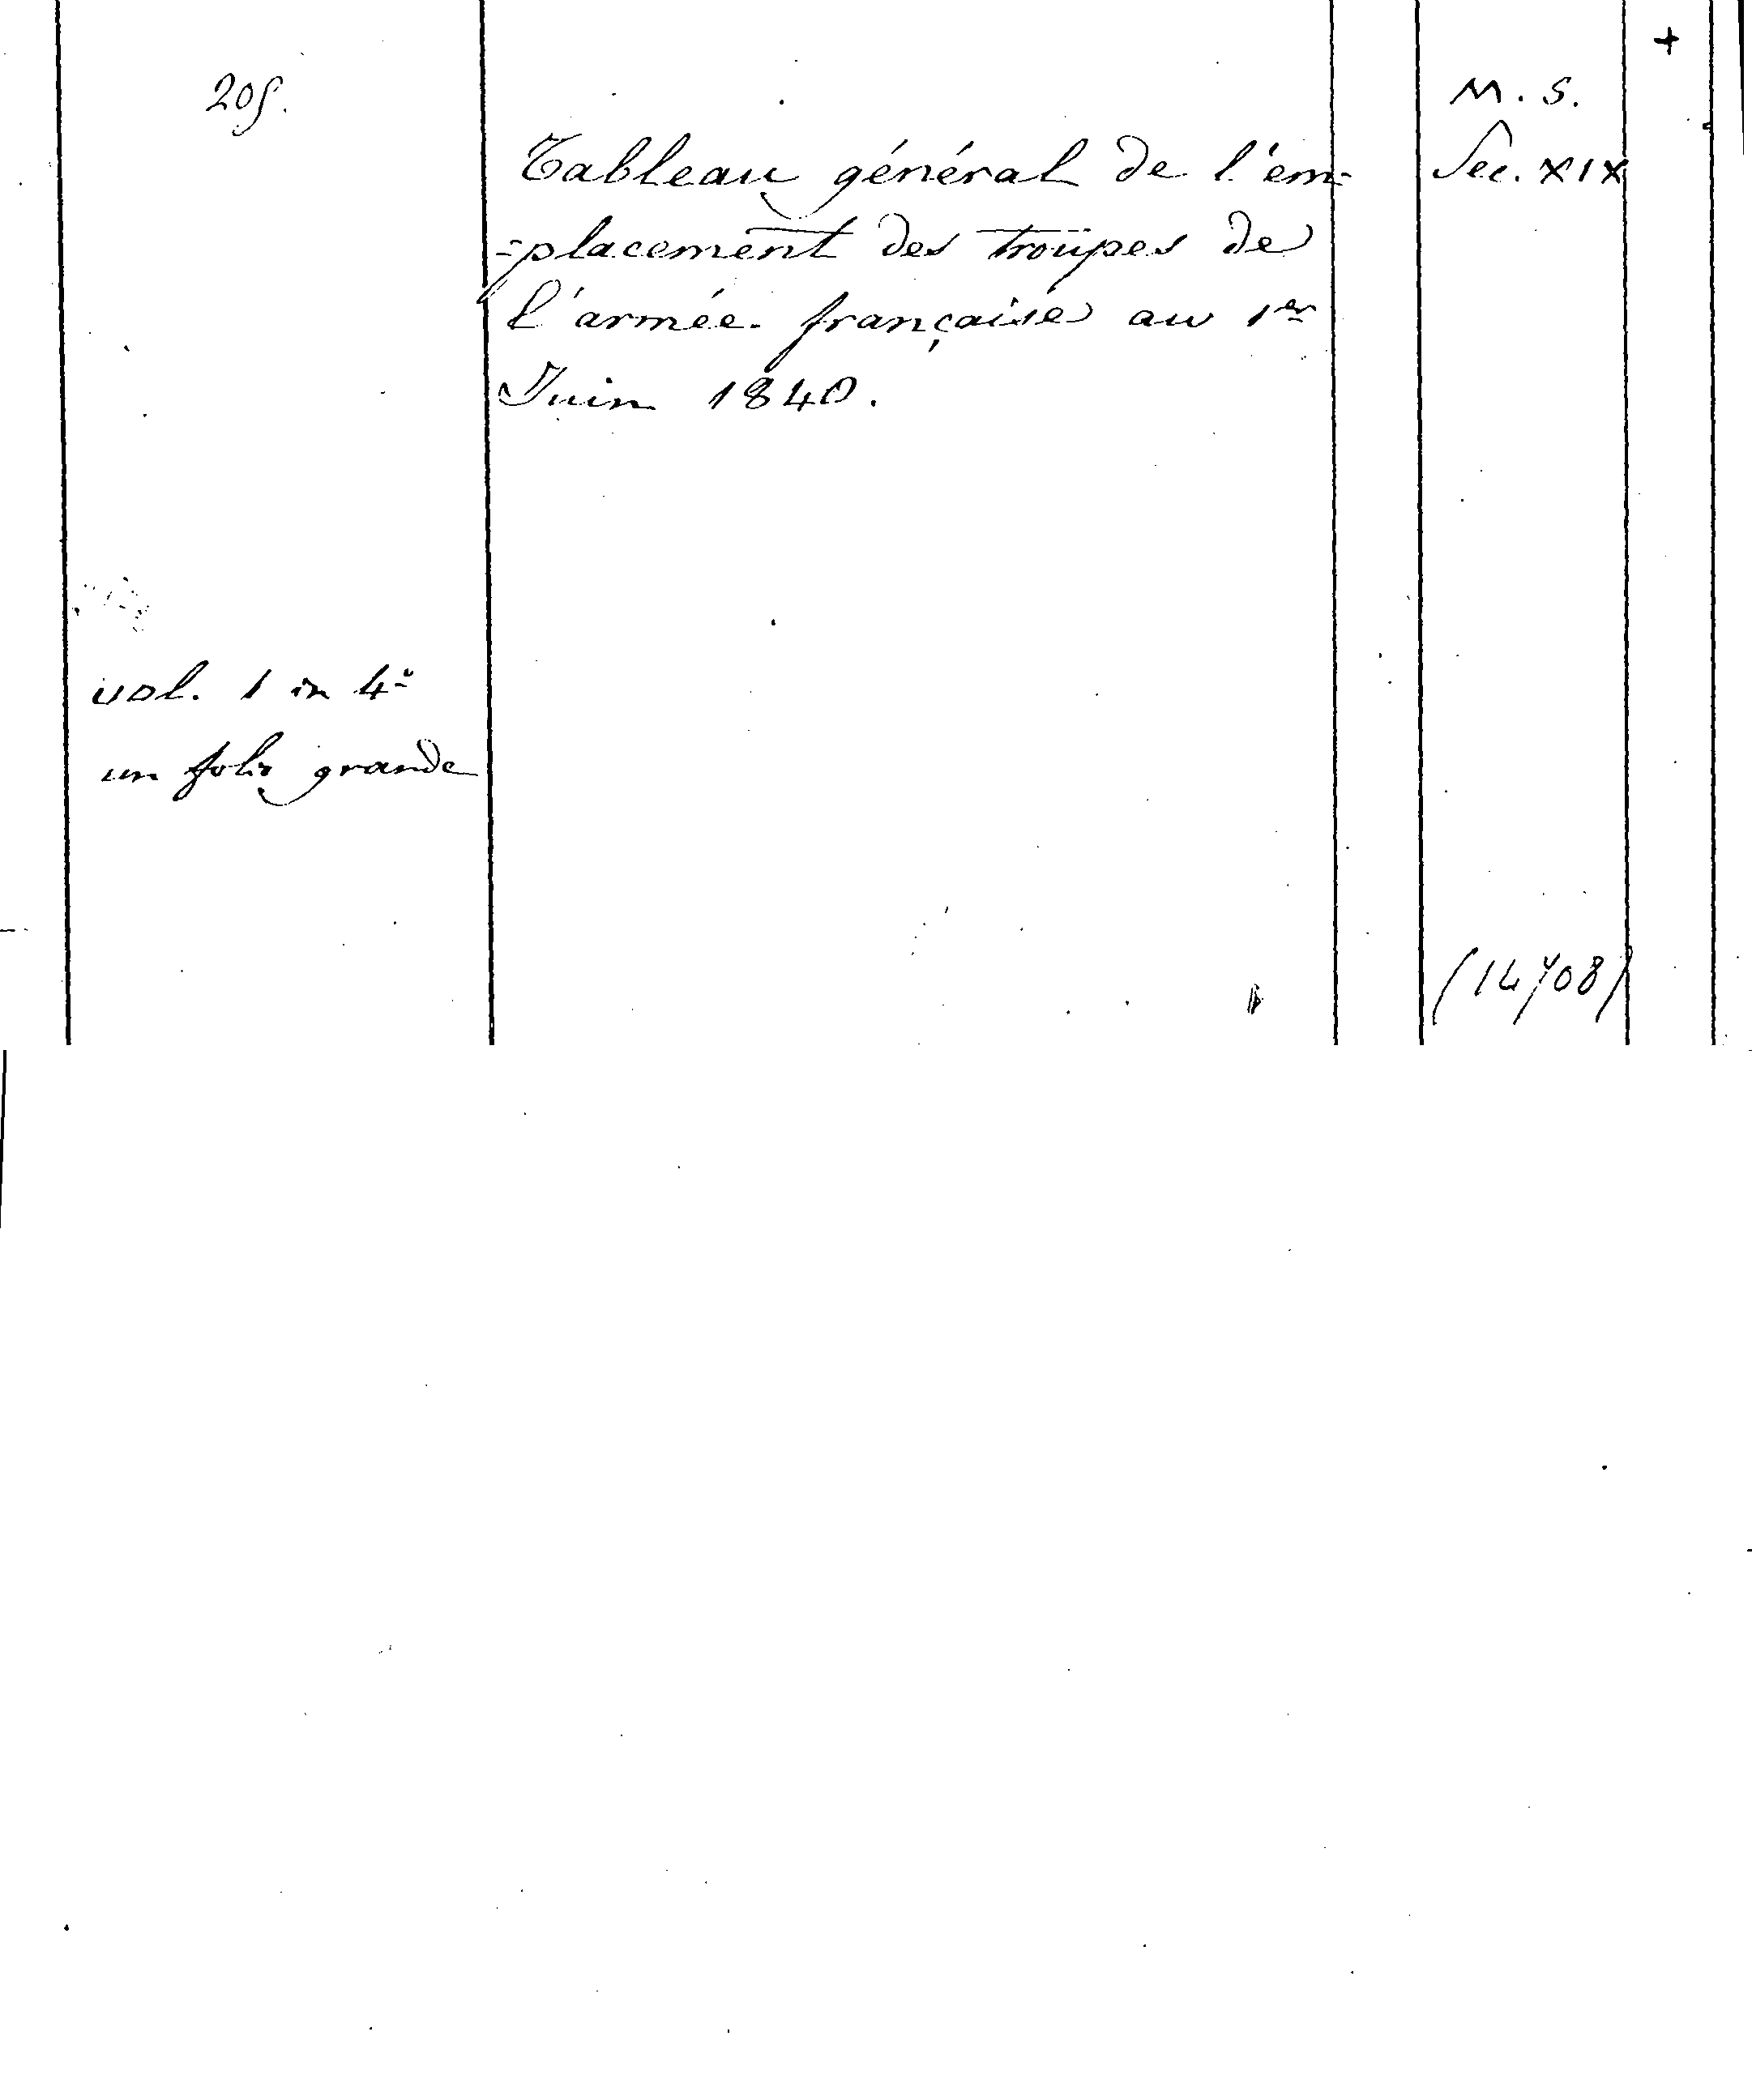 205.
Tableau général de l'em-
-placement des troupes de
l'armée française au 1er
Juin 1840.
vol. 1 in 4º
un folio grande
+
M. S.
Sec. XIX
(14708)